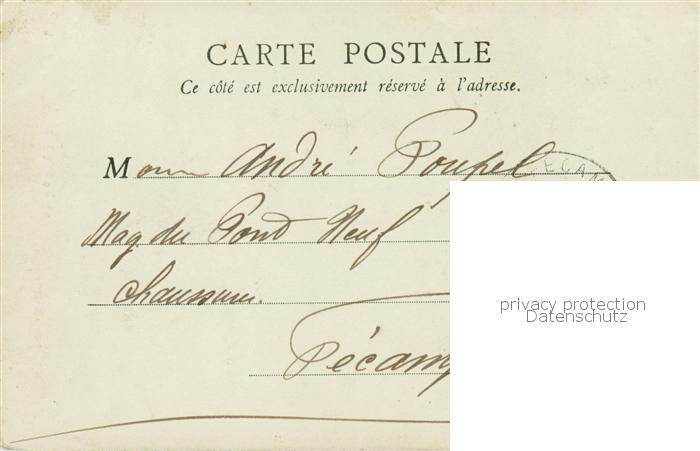 CARTE POSTALE
Ce côté est exclusivement réservé à l'adresse.
Monsieur André Poupel
ECAM
Mag. du Pont Neuf
Chaussures.
Fécamp
privacy protection
Datenschutz